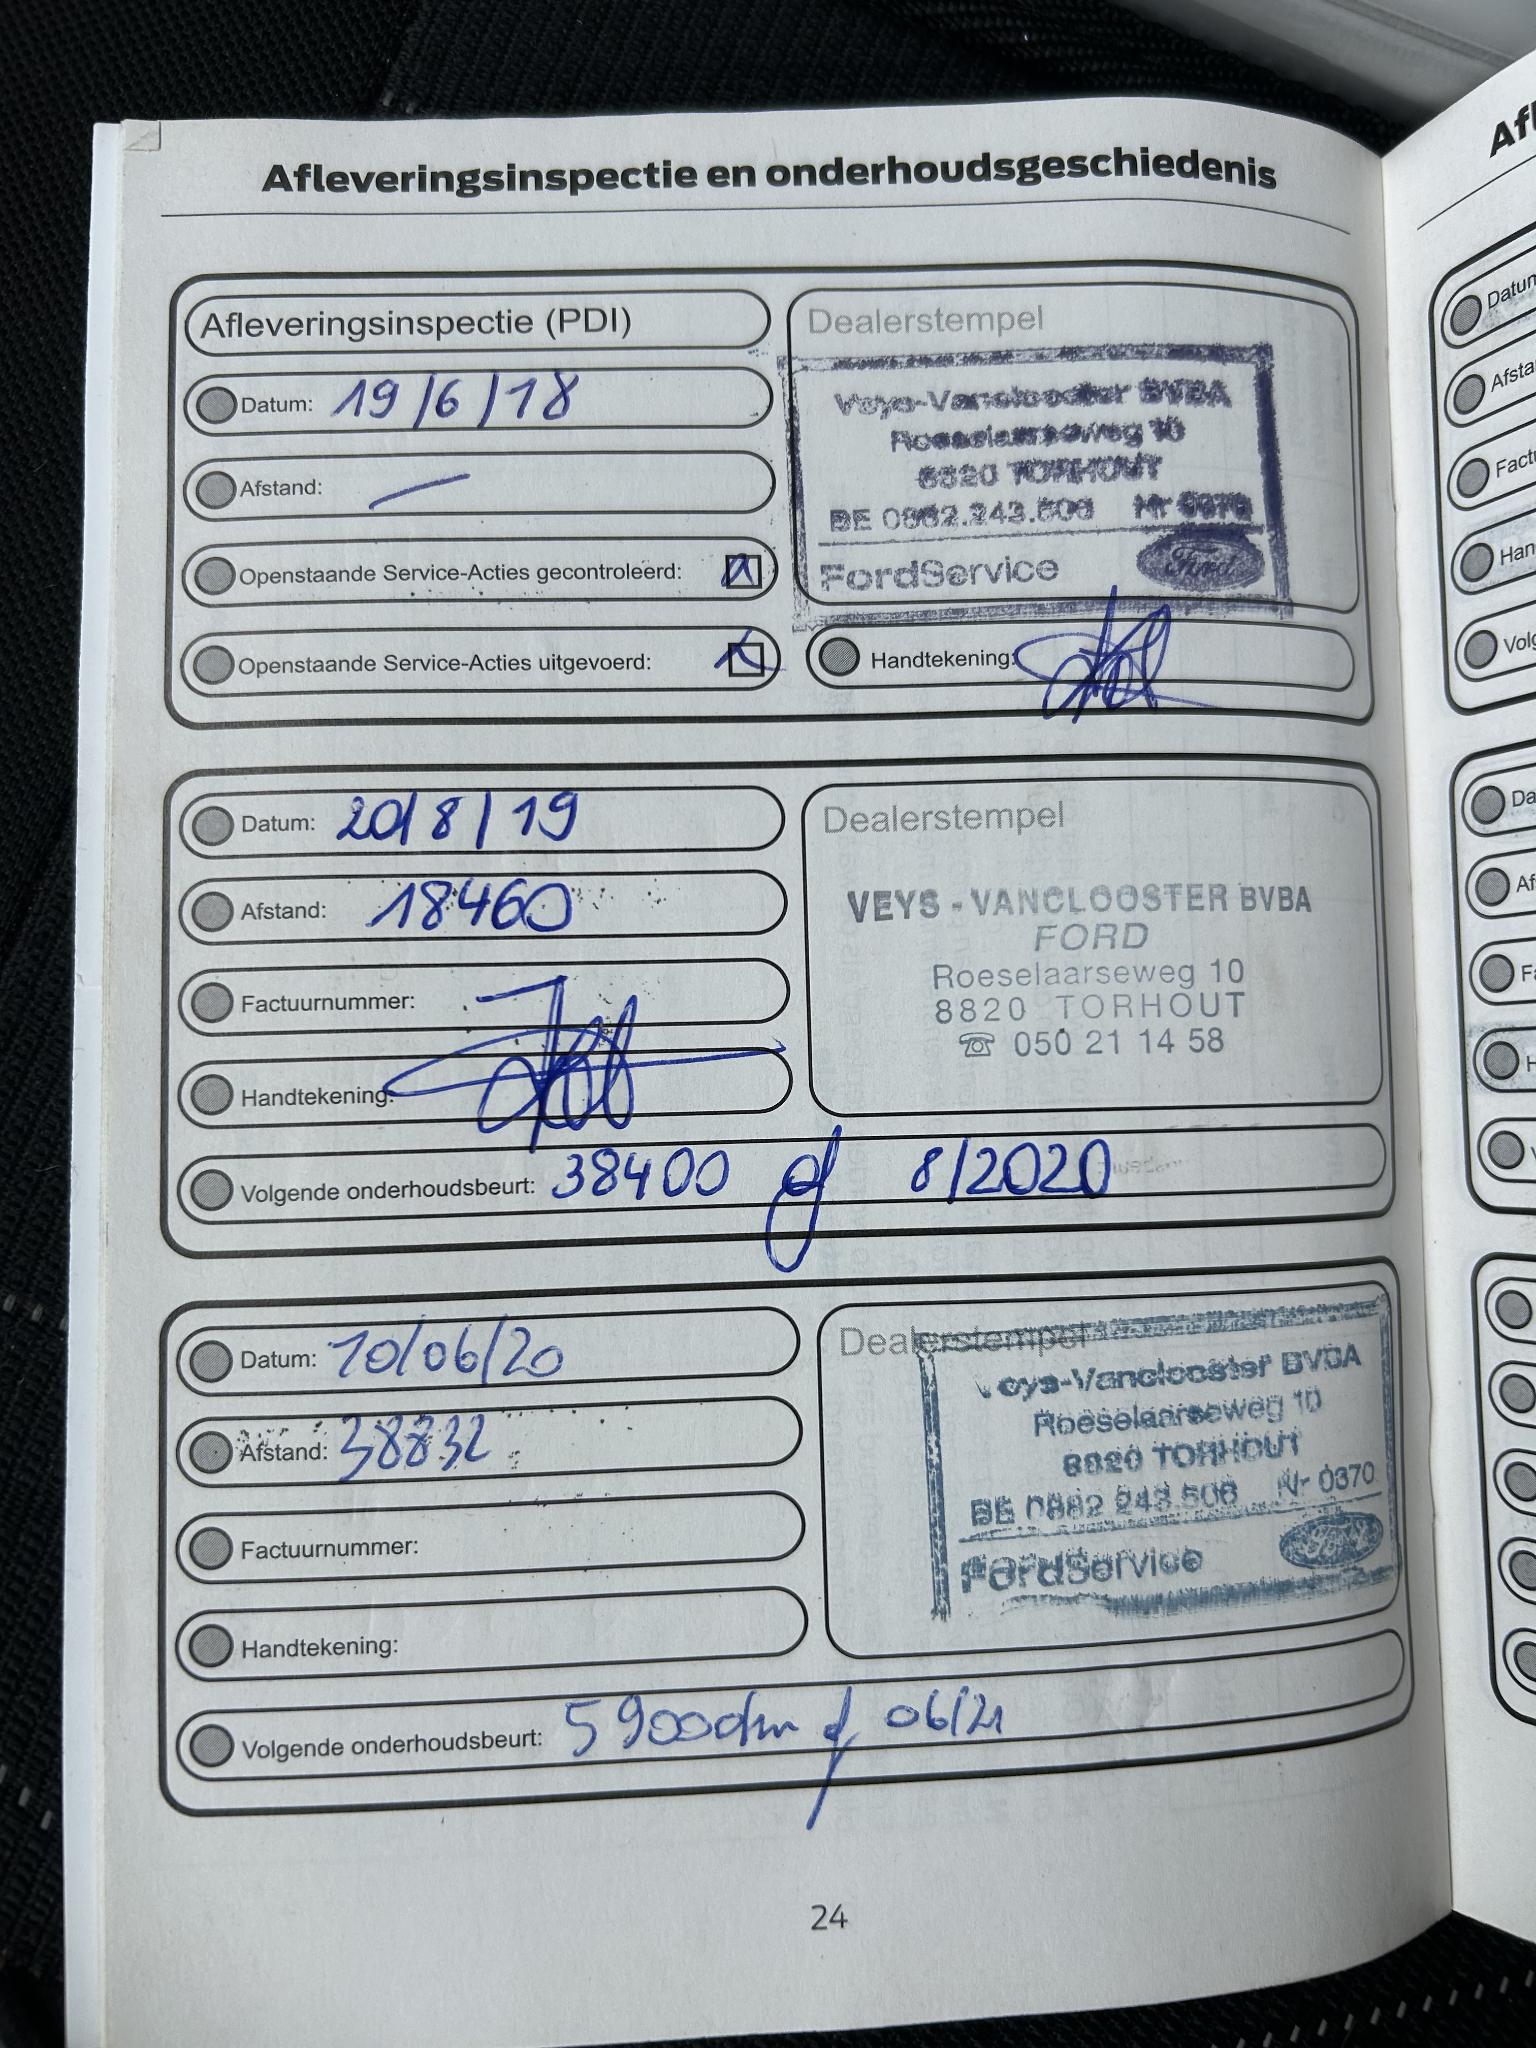 Afleveringsinspectie en onderhoudsgeschiedenis
Afleveringsinspectie (PDI)
Datum: 19/6/18
Afstand: —
Openstaande Service-Acties gecontroleerd:
Openstaande Service-Acties uitgevoerd:
Dealerstempel
Veys-Vanclooster BVBA
Roeselaarseweg 10
8820 TORHOUT
BE 0882.243.506 Nr 0370
FordService
Ford
Handtekening:
Datum: 20/8/19
Afstand: 18460
Factuurnummer:
Handtekening:
Volgende onderhoudsbeurt: 38400 of 8/2020
Dealerstempel
VEYS - VANCLOOSTER BVBA
FORD
Roeselaarseweg 10
8820 TORHOUT
☎ 050 21 14 58
Datum: 10/06/20
Afstand: 38832
Factuurnummer:
Handtekening:
Volgende onderhoudsbeurt: 59000km of 06/21
Dealerstempel
Veys-Vanclooster BVBA
Roeselaarseweg 10
8820 TORHOUT
BE 0882 243.506 Nr 0370
FordService
Ford
24